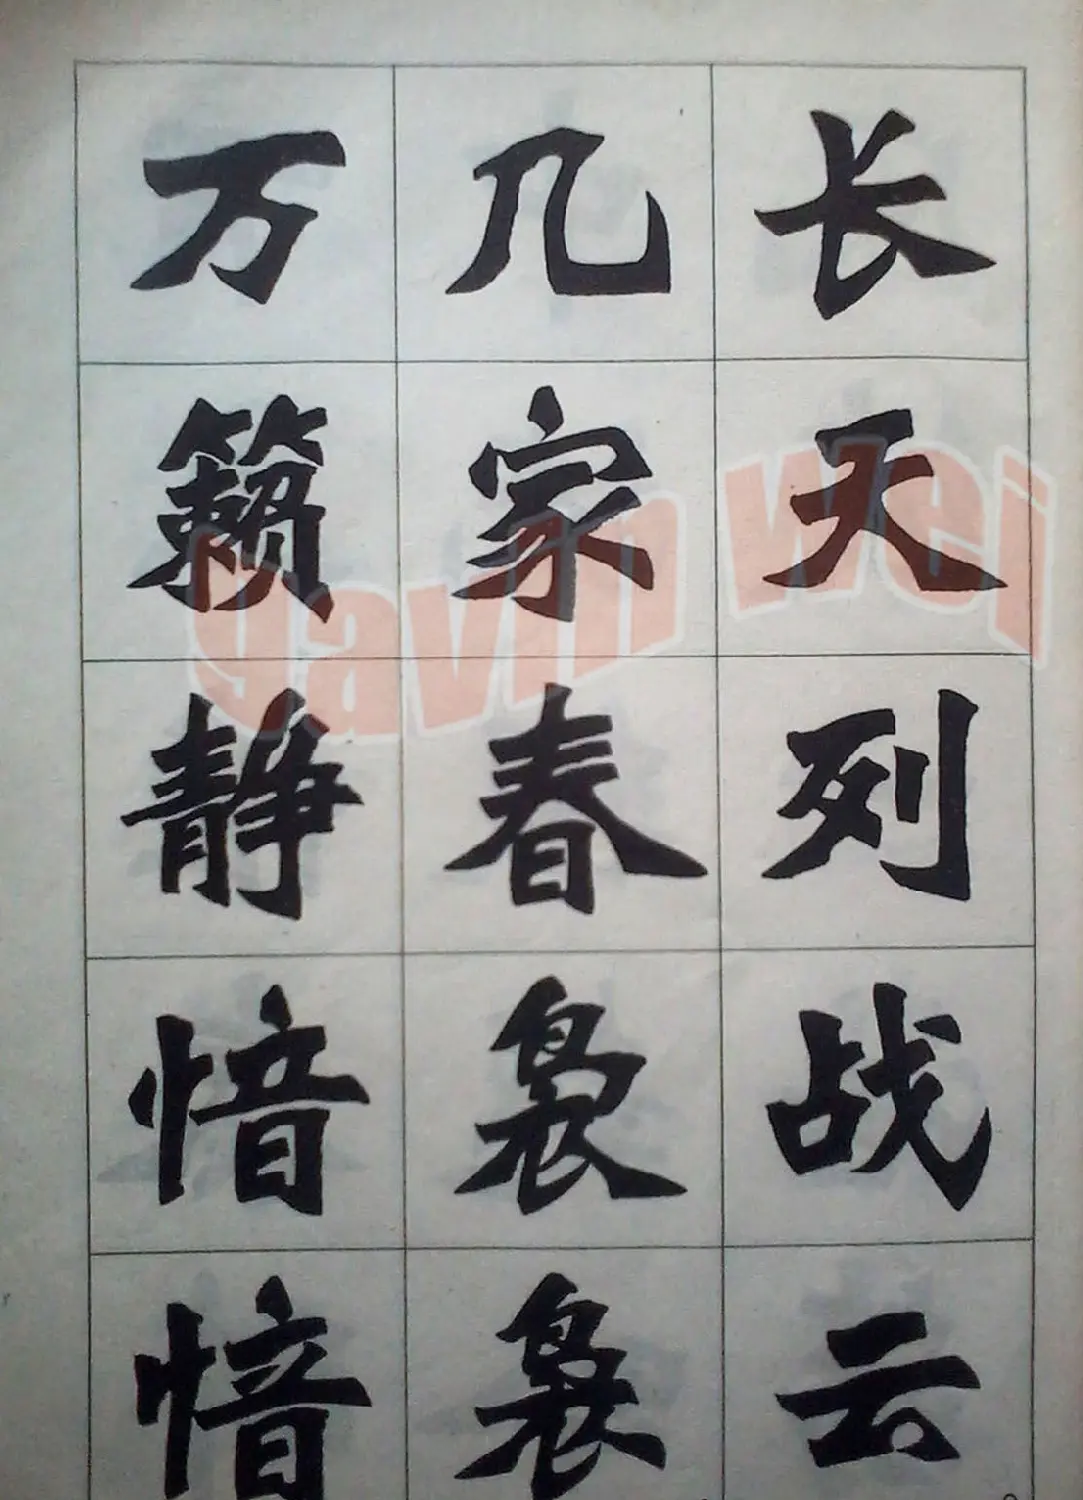 长天列战云
几家春袅袅
万籁静愔愔
gavin wei